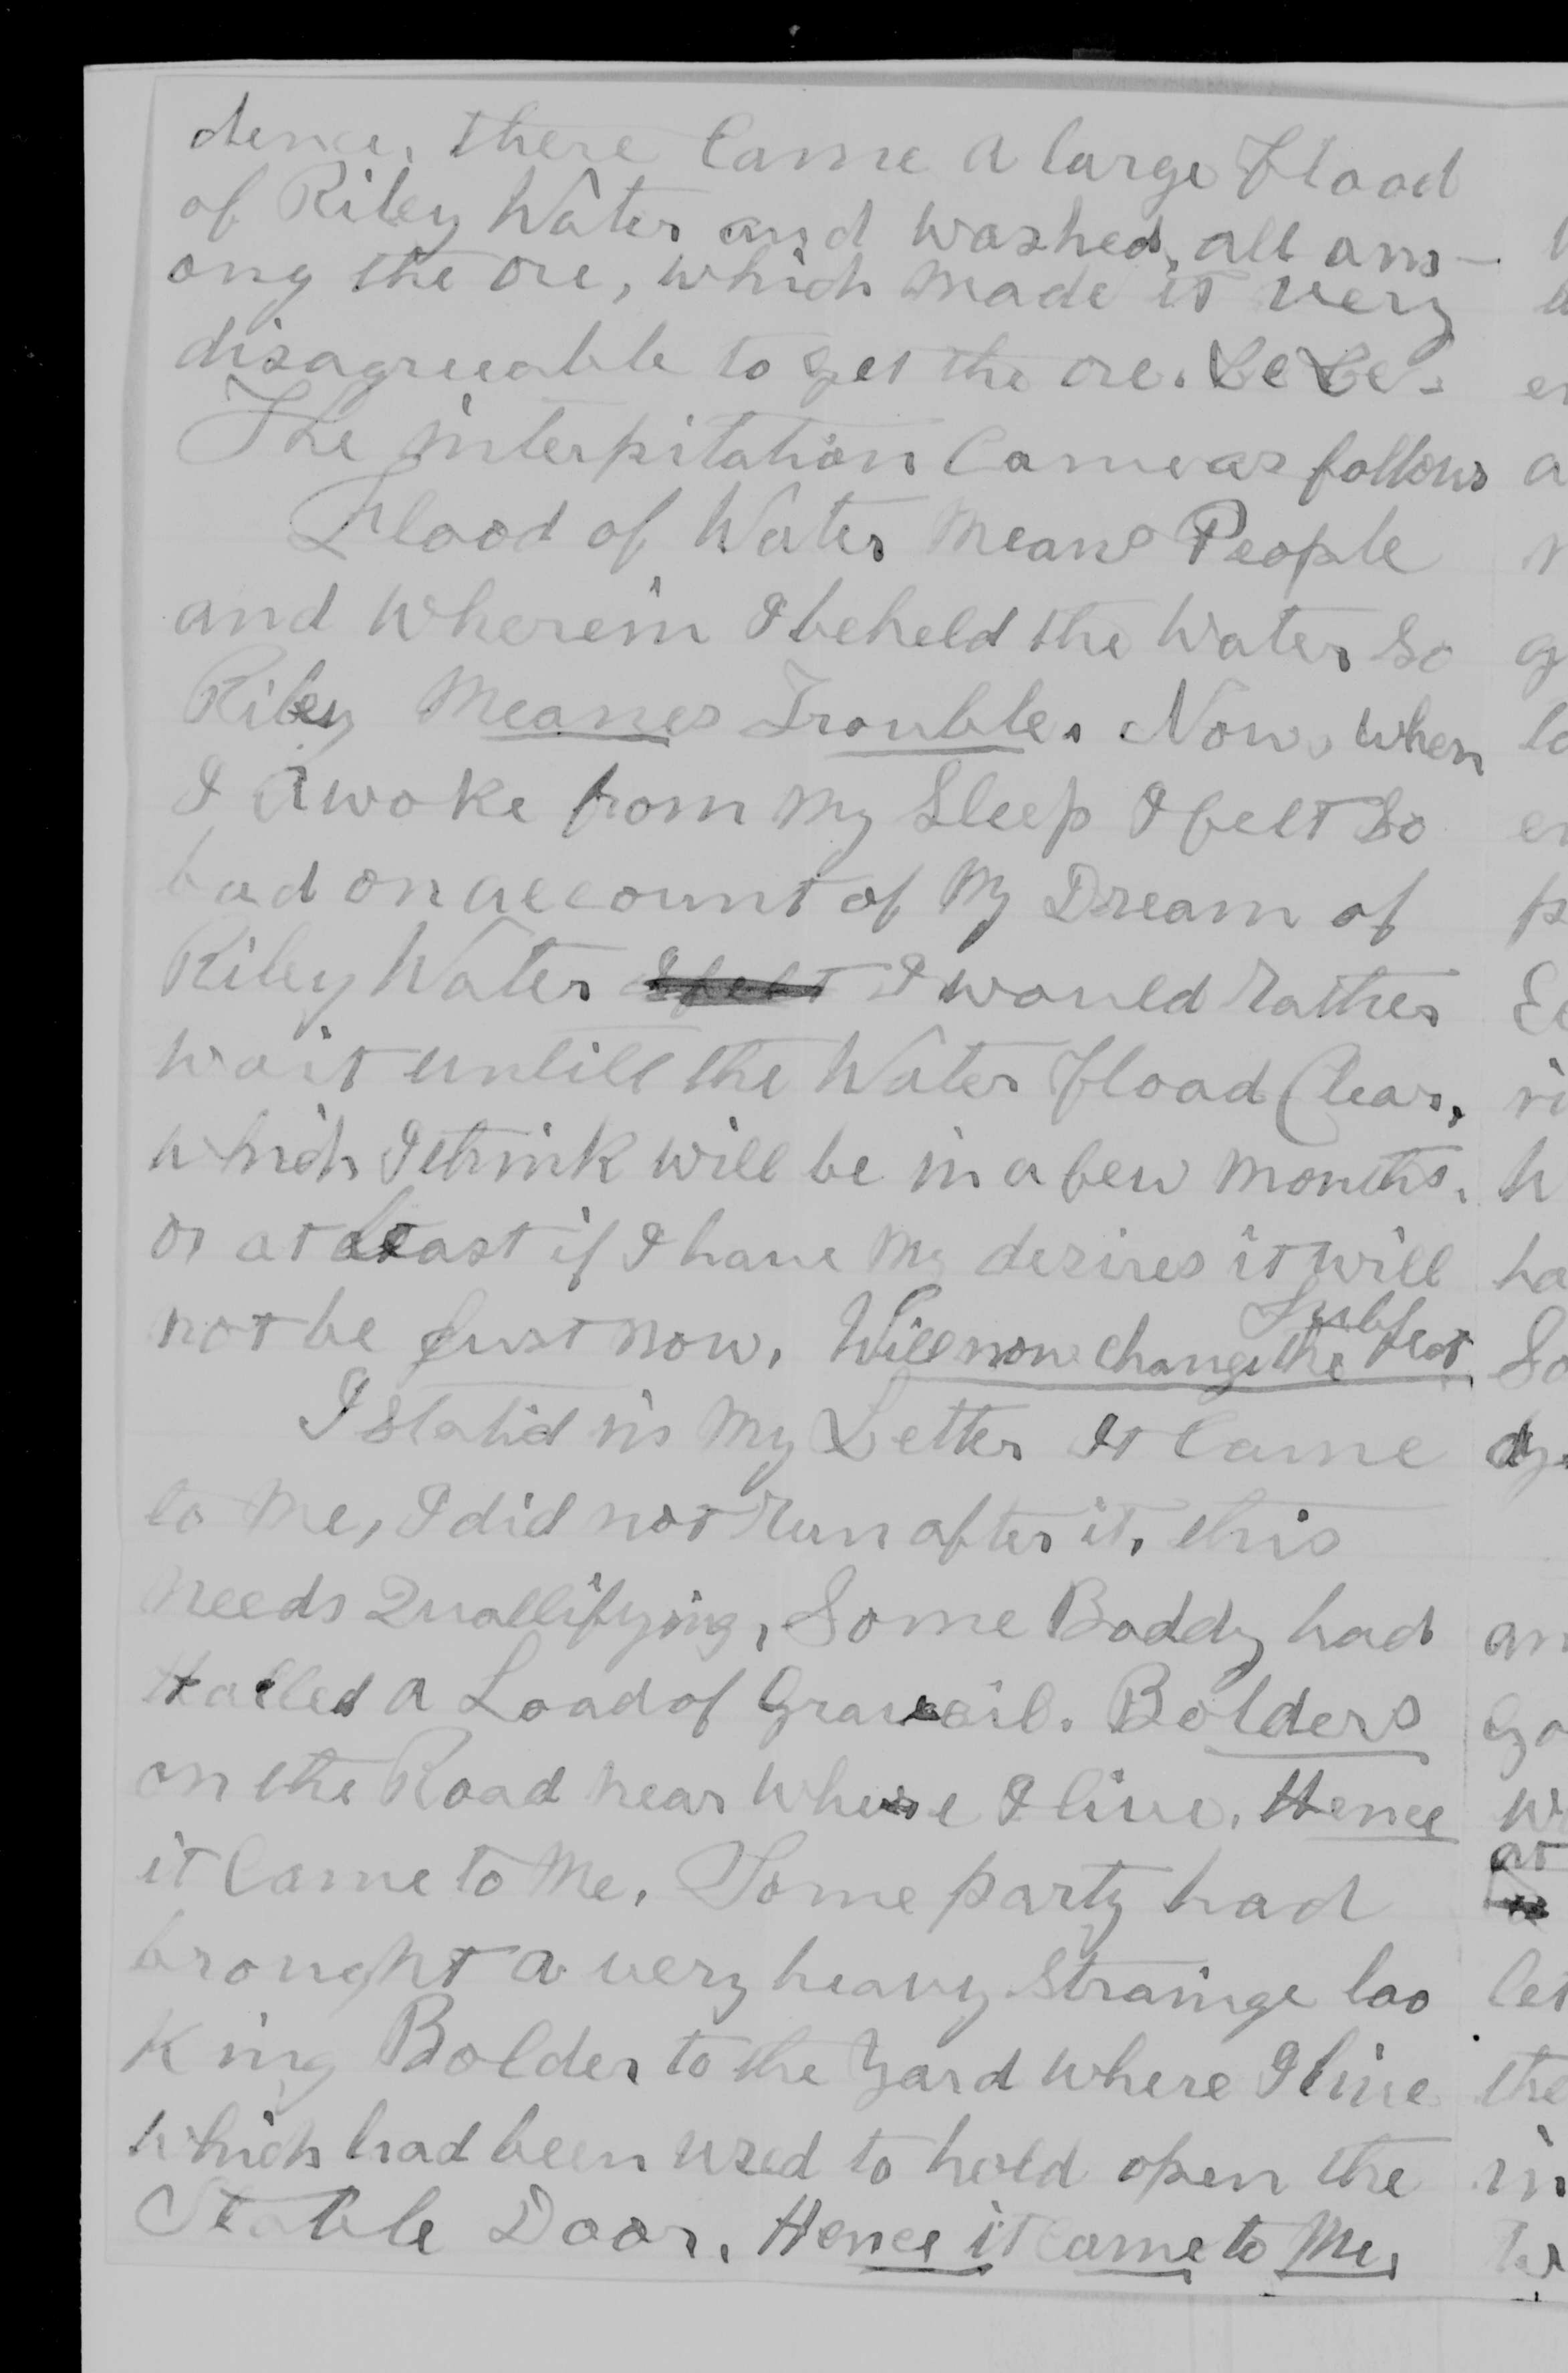 dence, there Came a large flood
of Riley Water and washed, all am-
ong the ore, which made it very
disagreeable to get the ore. &c &c.
The interpitation Came as follows
Flood of Water Means People
and wherein I beheld the Water so
Riley Meanes Trouble. Now when
I Awoke from My Sleep I felt So
bad on account of My Dream of
Riley Water I felt I would rather
wait untill the Water flood Clear,
which I think will be in a few months.
or at least if I have My desires it will
not be just now. Will now change the Subject.
I statid in My Letter It Came
to Me, I did not run after it, this
needs Quallifying, Some Boddy had
Halled a Load of Graveil. Bolders
on the Road near where I live. Hence
it Came to Me. Some party had
brought a very heavy Strainge loo
King Bolder to the Yard where I live
which had been used to hold open the
Stable Door. Hence it came to Me.